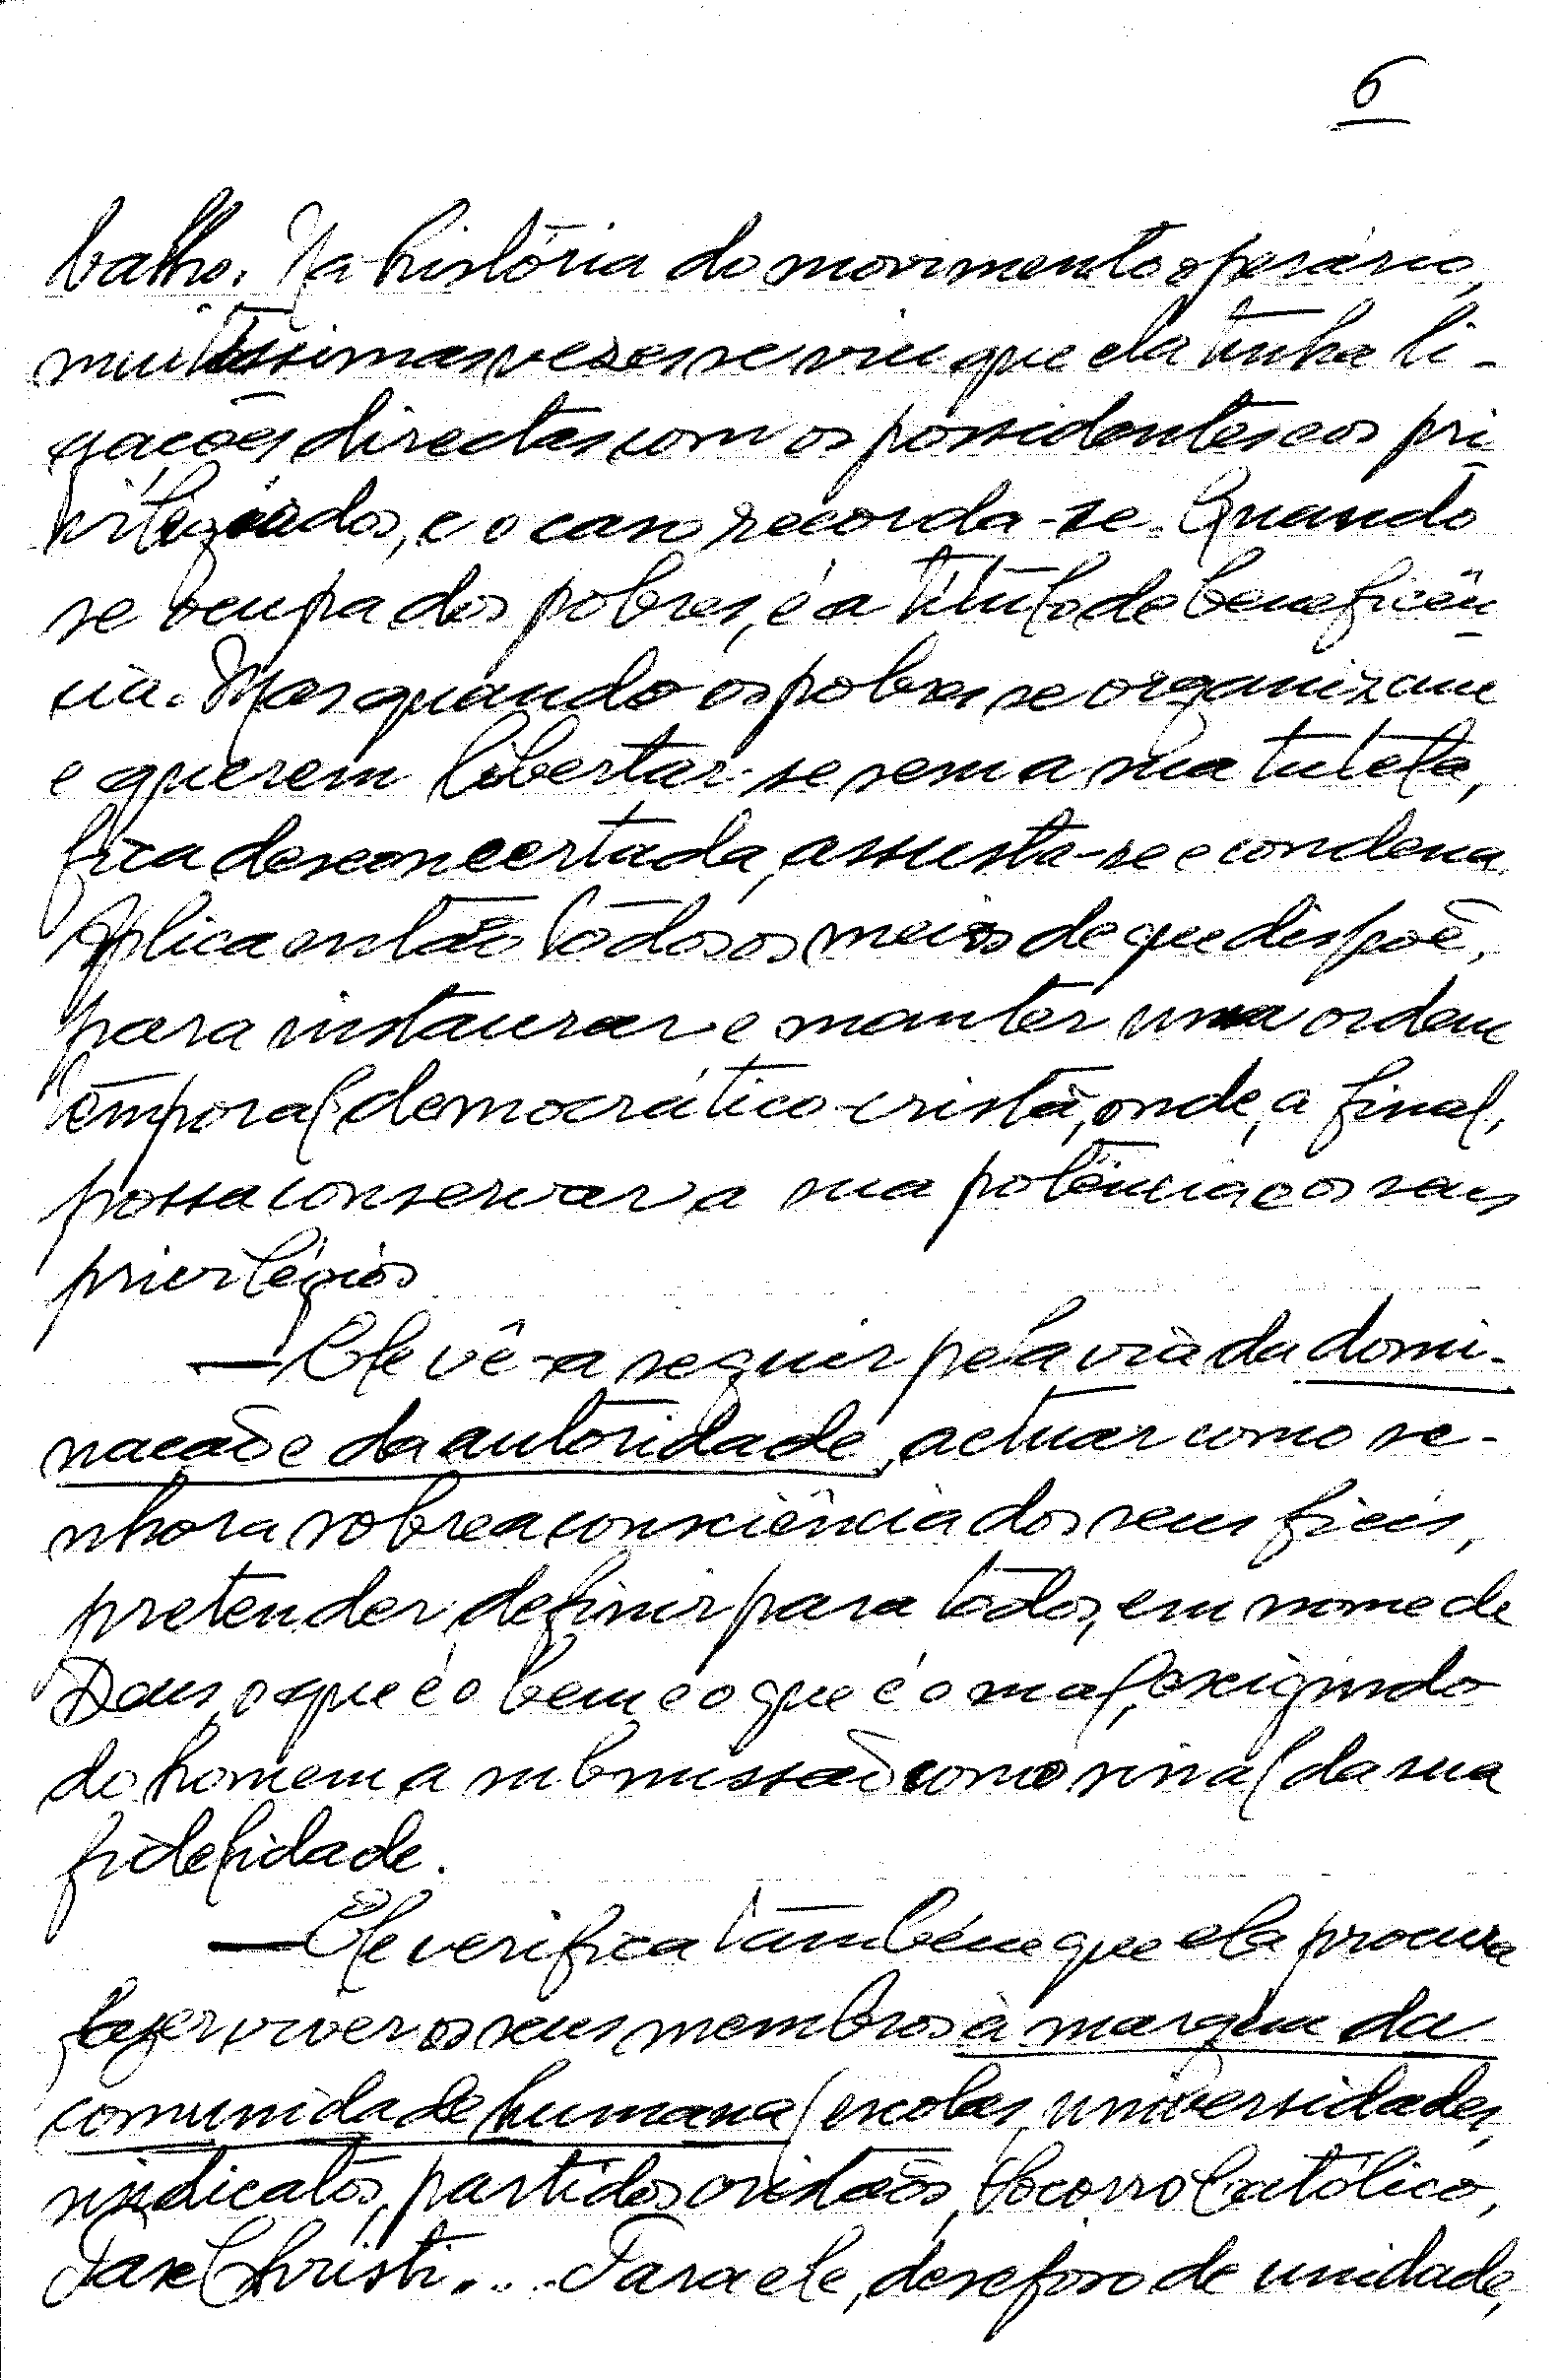 6
balho. Na história do movimento operário,
muitíssimas vezes se viu que ela tinha li-
gações directas com os possidentes e os pri-
vilegiados, e o caso recorda-se. Quando
se ocupa dos pobres, é a título de beneficên-
cia. Mas quando os pobres se organizam
e querem libertar-se sem a sua tutela,
fica desconcertada, assusta-se e condena.
Aplica então todos os meios de que dispõe,
para instaurar e manter uma ordem
temporal democrático-cristã, onde, a final,
possa conservar a sua potência e os seus
privilégios
— Ele vê-a seguir pela via da domi-
nação e da autoridade, actuar como se-
nhora sobre a consciência dos seus fiéis,
pretender definir para todos, em nome de
Deus, o que é o bem e o que é o mal, exigindo
do homem a submissão como sinal da sua
fidelidade.
— Ele verifica também que ela procura
fazer viver os seus membros à margem da
comunidade humana (escolas, universidades,
sindicatos, partidos cristãos, Socorro Católico,
Pax Christi... Para ele, desejoso de unidade,